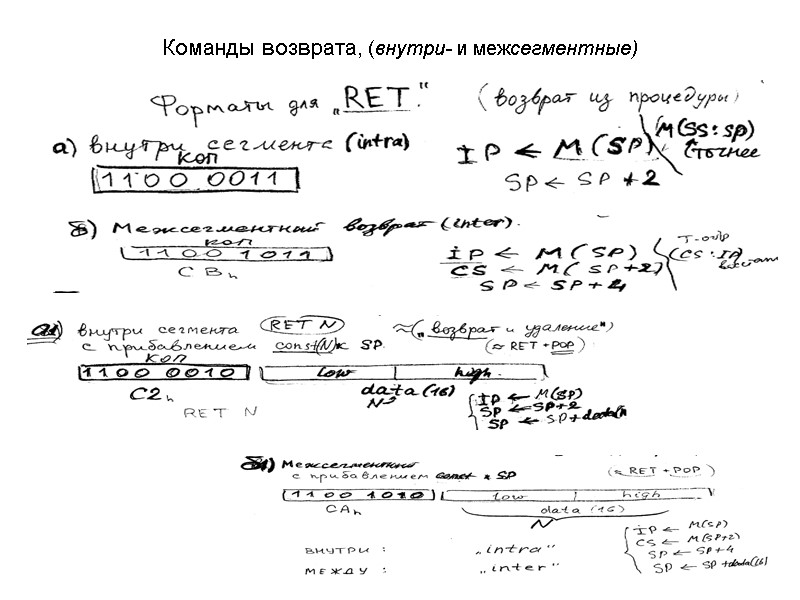 Команды возврата, (внутри- и межсегментные)
Форматы для „RET." (возврат из процедуры)
а) внутри сегмента (intra)
коп
1100 0011
IP ← M(SP) M(SS:SP)
(точнее
SP ← SP + 2
б) Межсегментный возврат (inter).
коп
1100 1011
CBh
IP ← M(SP)
CS ← M(SP+2)
SP ← SP+4
(CS:IP)
а1) внутри сегмента RET N ≈(„возврат и удаление")
с прибавлением const(N) к SP. (≈ RET + POP)
коп
1100 0010 low high
C2h data (16)
N
RET N
IP ← M(SP)
SP ← SP+2
SP ← SP+data(16
б1) Межсегментный
с прибавлением const к SP (≈ RET + POP)
1100 1010 low high
CAh data (16)
N
IP ← M(SP)
CS ← M(SP+2)
SP ← SP+4
SP ← SP+data(16)
ВНУТРИ : „intra"
МЕЖДУ : „inter"